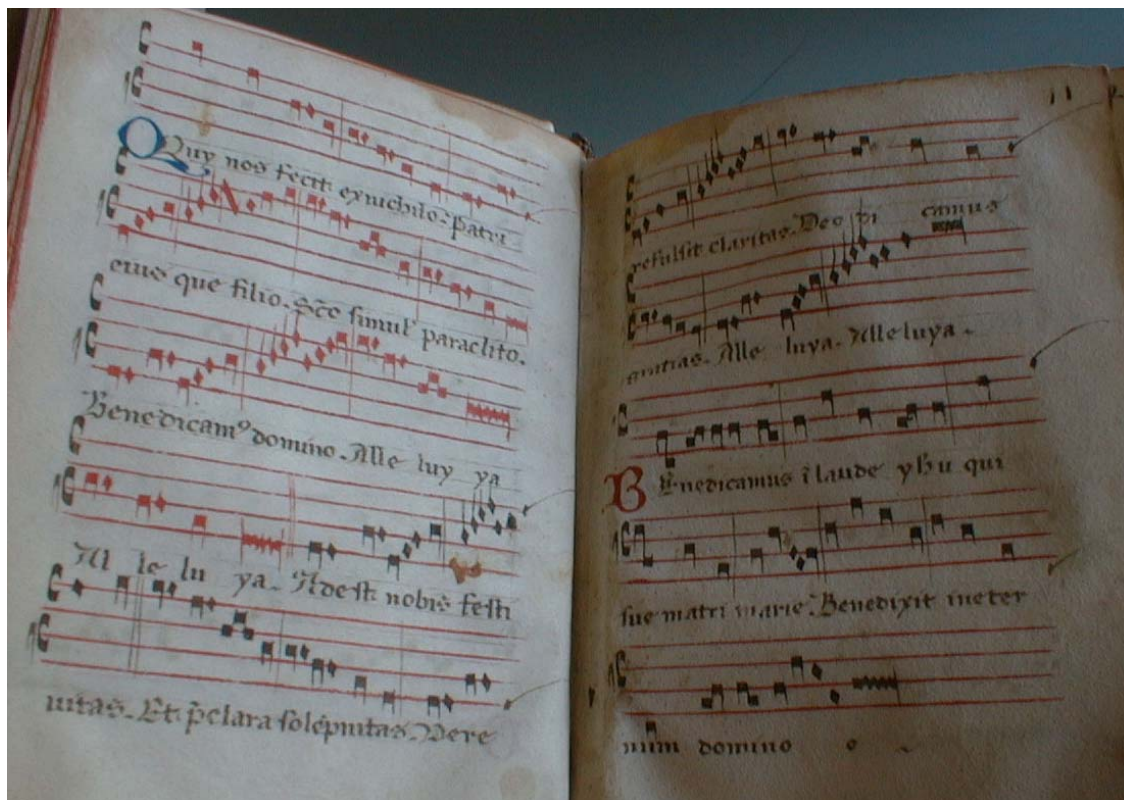 Quy nos fecit exnichilo. Patri
eius que filio. Sc̃o simul paraclito.
Benedicamꝰ domino. Alle luy ya
Al le lu ya. Adest nobis festi
uitas. Et p̃clara solẽpnitas. Vere
refulsit claritas. Deo di camus
gratias. Alle luya. Alleluya.
Benedicamus ĩ laude yhu qui
sue matri marie. Benedixit ineter
num domino o